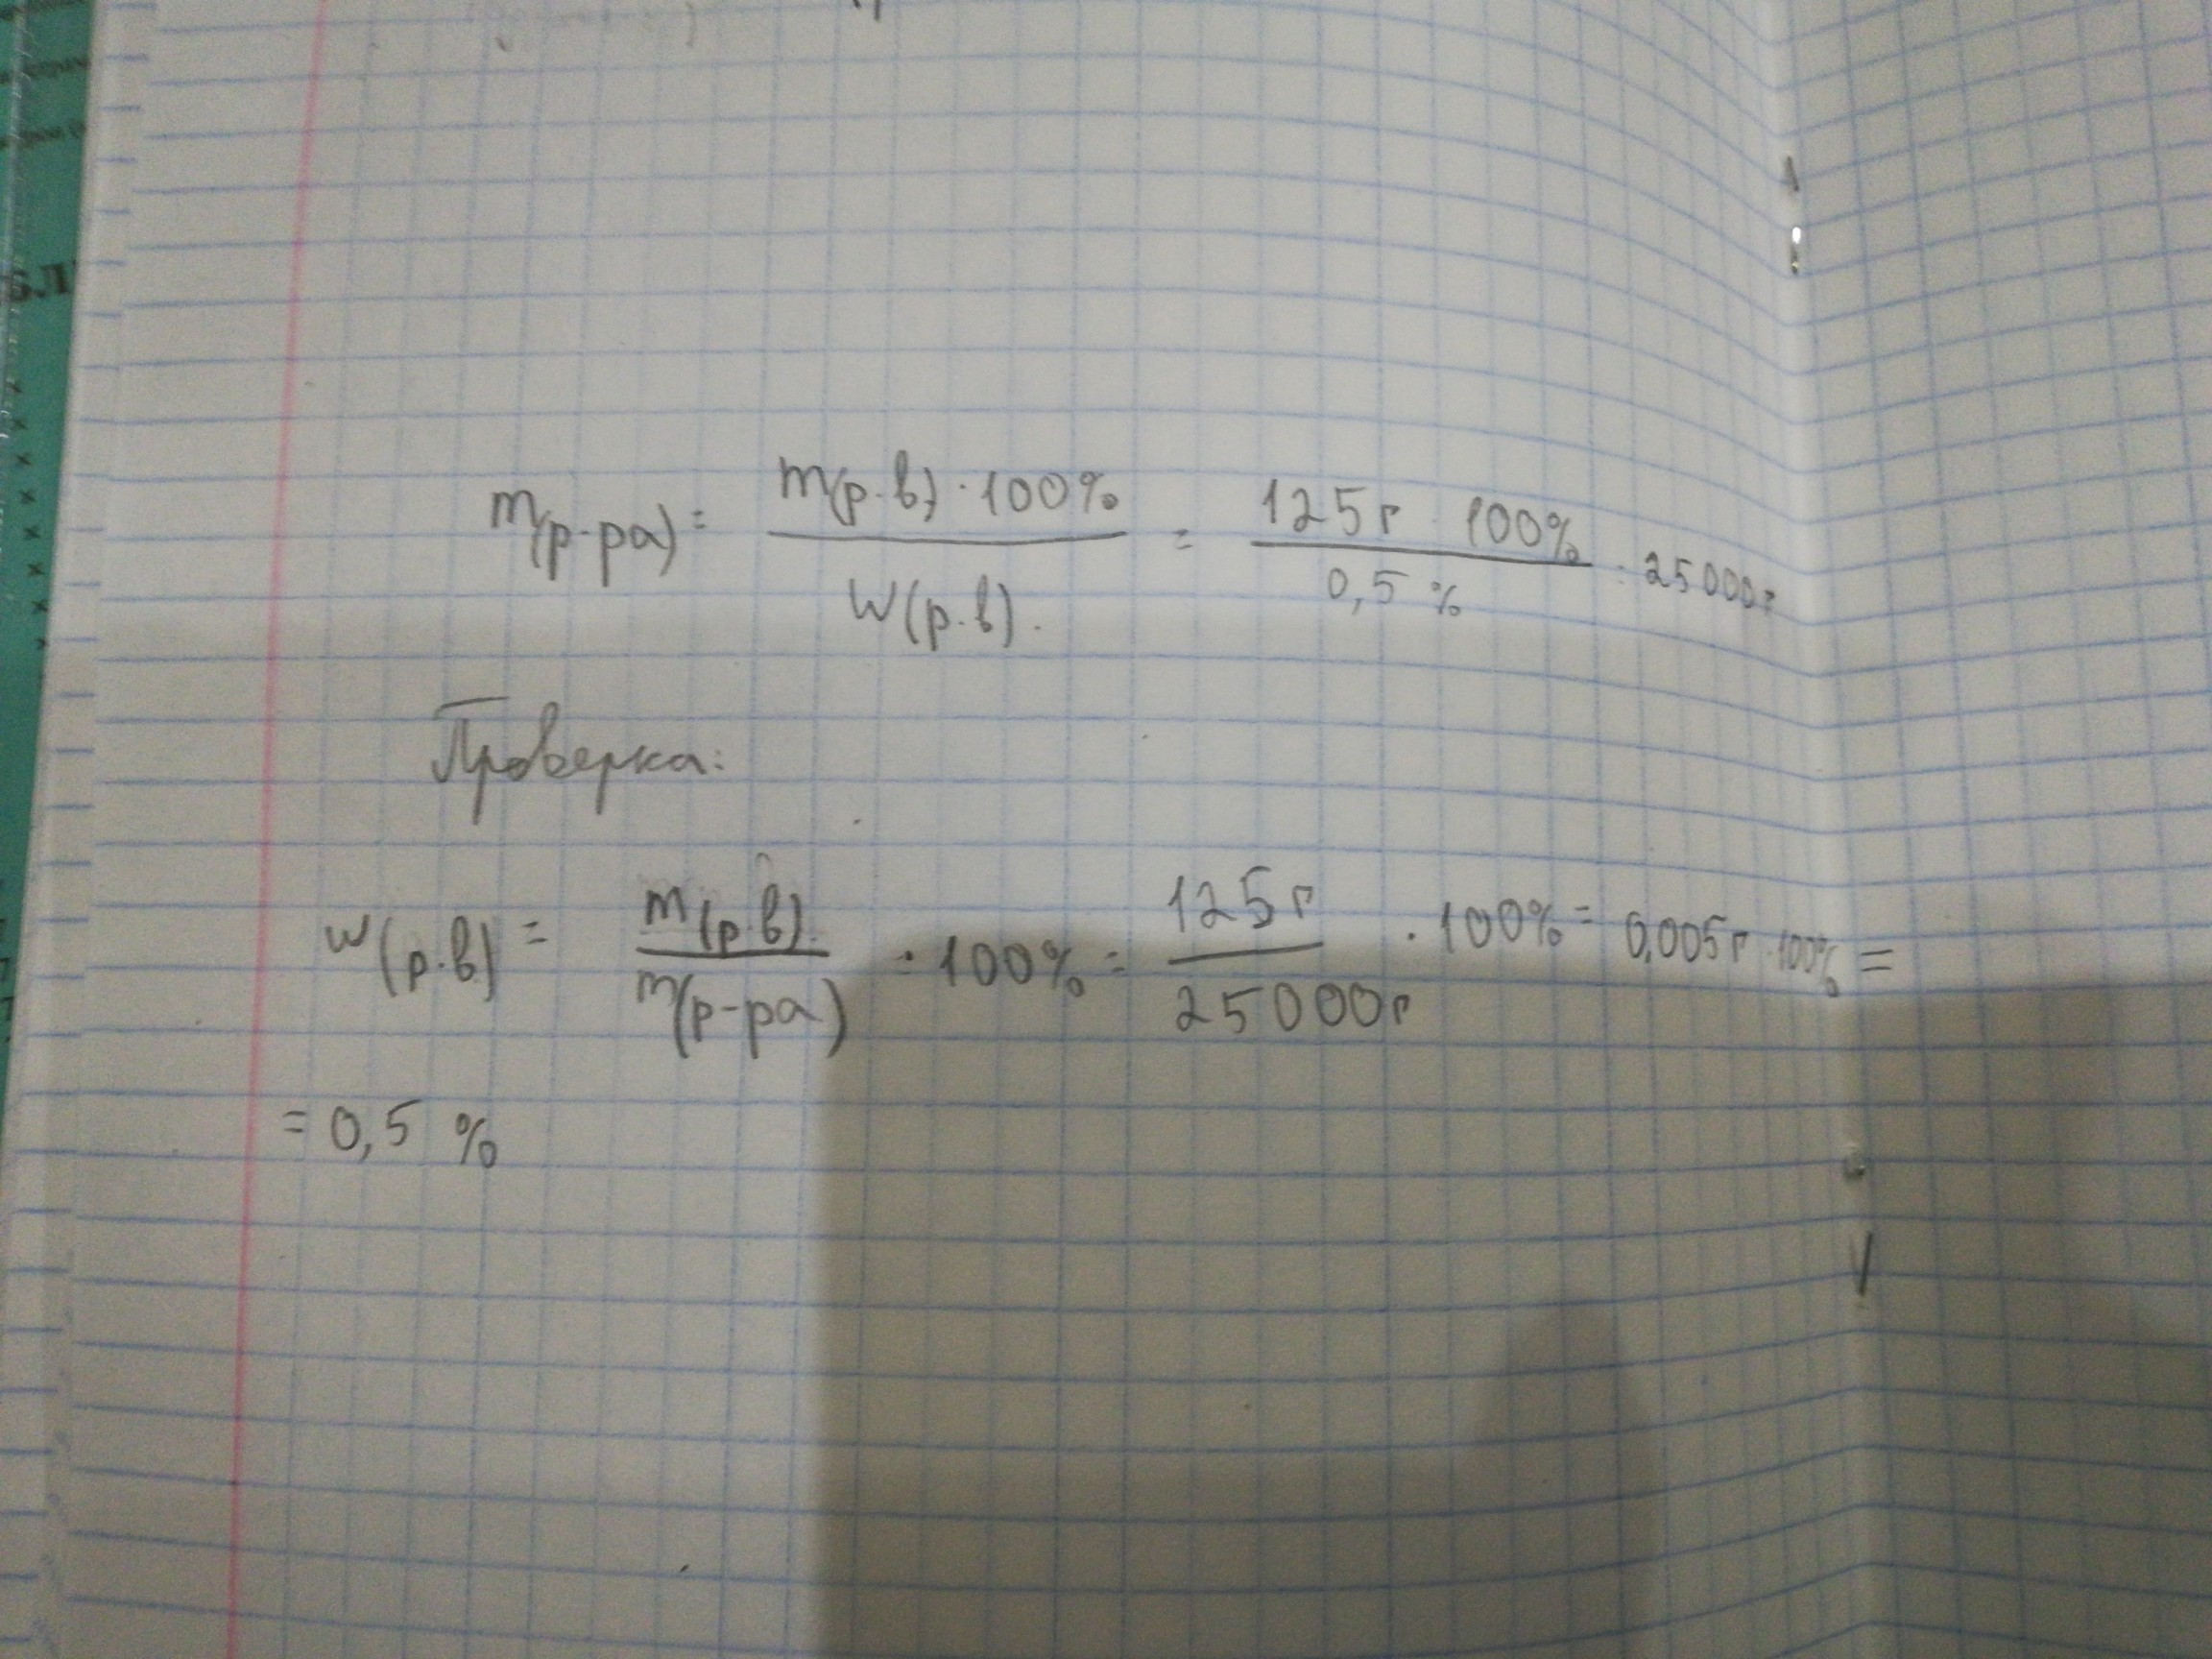 m(р-ра) = m(р.в) · 100% / W(р.в). = 125г 100% / 0,5 % = 25000г
Проверка:
w(р.в) = m(р.в). / m(р-ра) · 100% = 125г / 25000г · 100% = 0,005г · 100% =
= 0,5 %